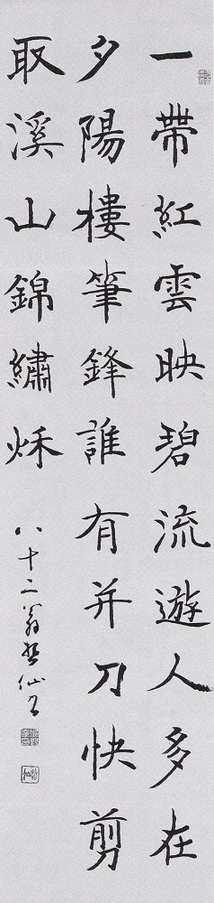 一帶紅雲映碧流遊人多在
夕陽樓筆鋒誰有并刀快剪
取溪山錦繡秌
八十二翁